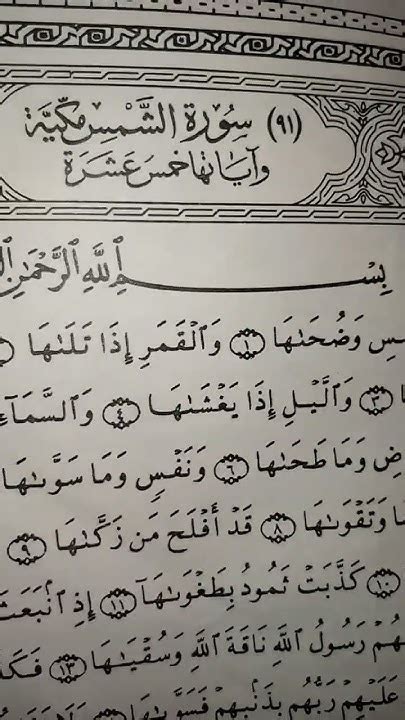 (٩١) سُورَةُ الشَّمْسِ مَكِّيَّة
وَآيَاتُهَا خَمْسَ عَشَرَةَ
بِسْمِ ٱللَّهِ ٱلرَّحْمَٰنِ
وَضُحَىٰهَا ١ وَٱلْقَمَرِ إِذَا تَلَىٰهَا
٣ وَٱلَّيْلِ إِذَا يَغْشَىٰهَا ٤ وَٱلسَّمَآءِ
وَمَا طَحَىٰهَا ٦ وَنَفْسٍ وَمَا سَوَّىٰهَا
وَتَقْوَىٰهَا ٨ قَدْ أَفْلَحَ مَن زَكَّىٰهَا ٩
١٠ كَذَّبَتْ ثَمُودُ بِطَغْوَىٰهَآ ١١ إِذِ ٱنۢبَعَثَ
رَسُولُ ٱللَّهِ نَاقَةَ ٱللَّهِ وَسُقْيَٰهَا ١٣
عَلَيْهِمْ رَبُّهُم بِذَنۢبِهِمْ فَسَوَّىٰهَا